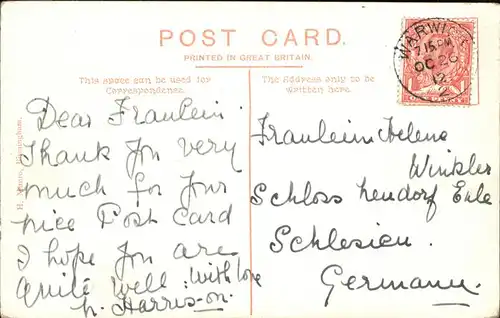 POST CARD.
PRINTED IN GREAT BRITAIN.
This space can be used for
Correspondence.
The Address only to be
written here.
WARWICK
7.15 PM
OC 26
12
2
H. Birmingham.
Dear Fraulein.
Thank you very
much for your
nice Post Card
I hope you are
quite well. With love
H. Harrison.
Fraulein Helene
Winkler
Schloss Neudorf Eule
Schlesien.
Germany.